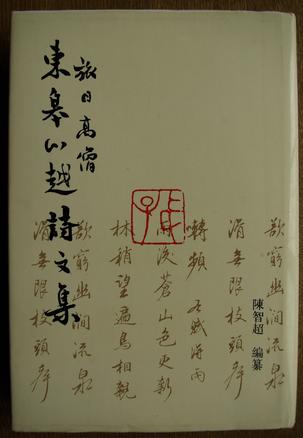 旅日高僧
東皋心越詩文集
欲窮幽澗流泉
陳智超 編纂
滑無限枝頭群
囀頻
蒼山色更新
林梢望遍鳥相親
欲窮幽澗流泉
滑無限枝頭群